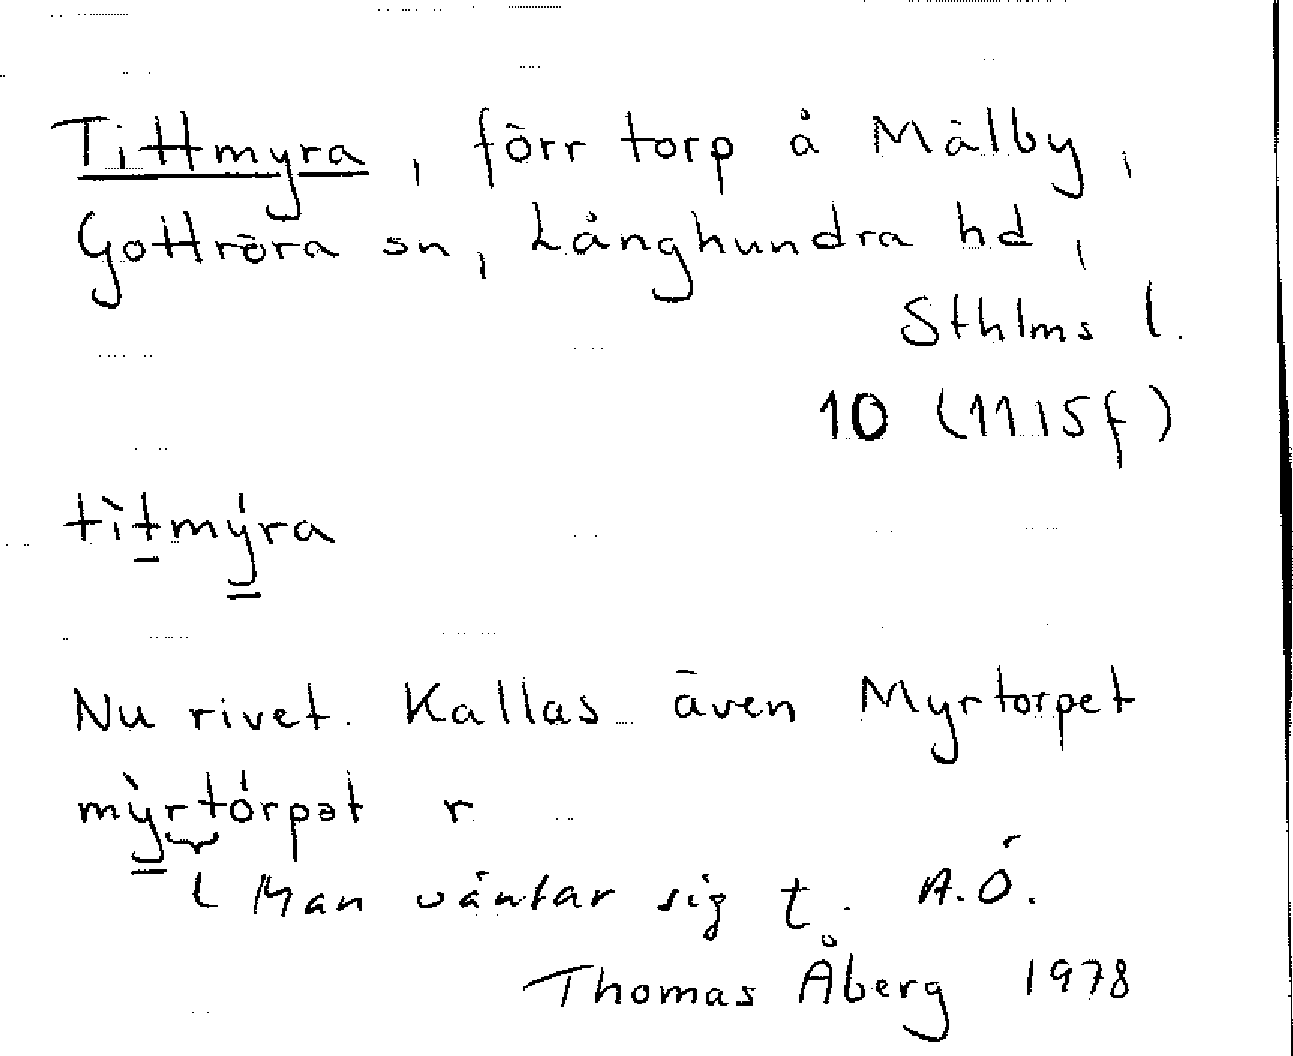 Tittmyra, förr torp å Målby,
Gottröra sn, Långhundra hd,
Sthlms l.
10 (11 I 5 f)
tìt̠mý̳ra
Nu rivet. Kallas även Myrtorpet
mỳ̳rtórpət r
Man väntar sig t. A.Ö.
Thomas Åberg 1978